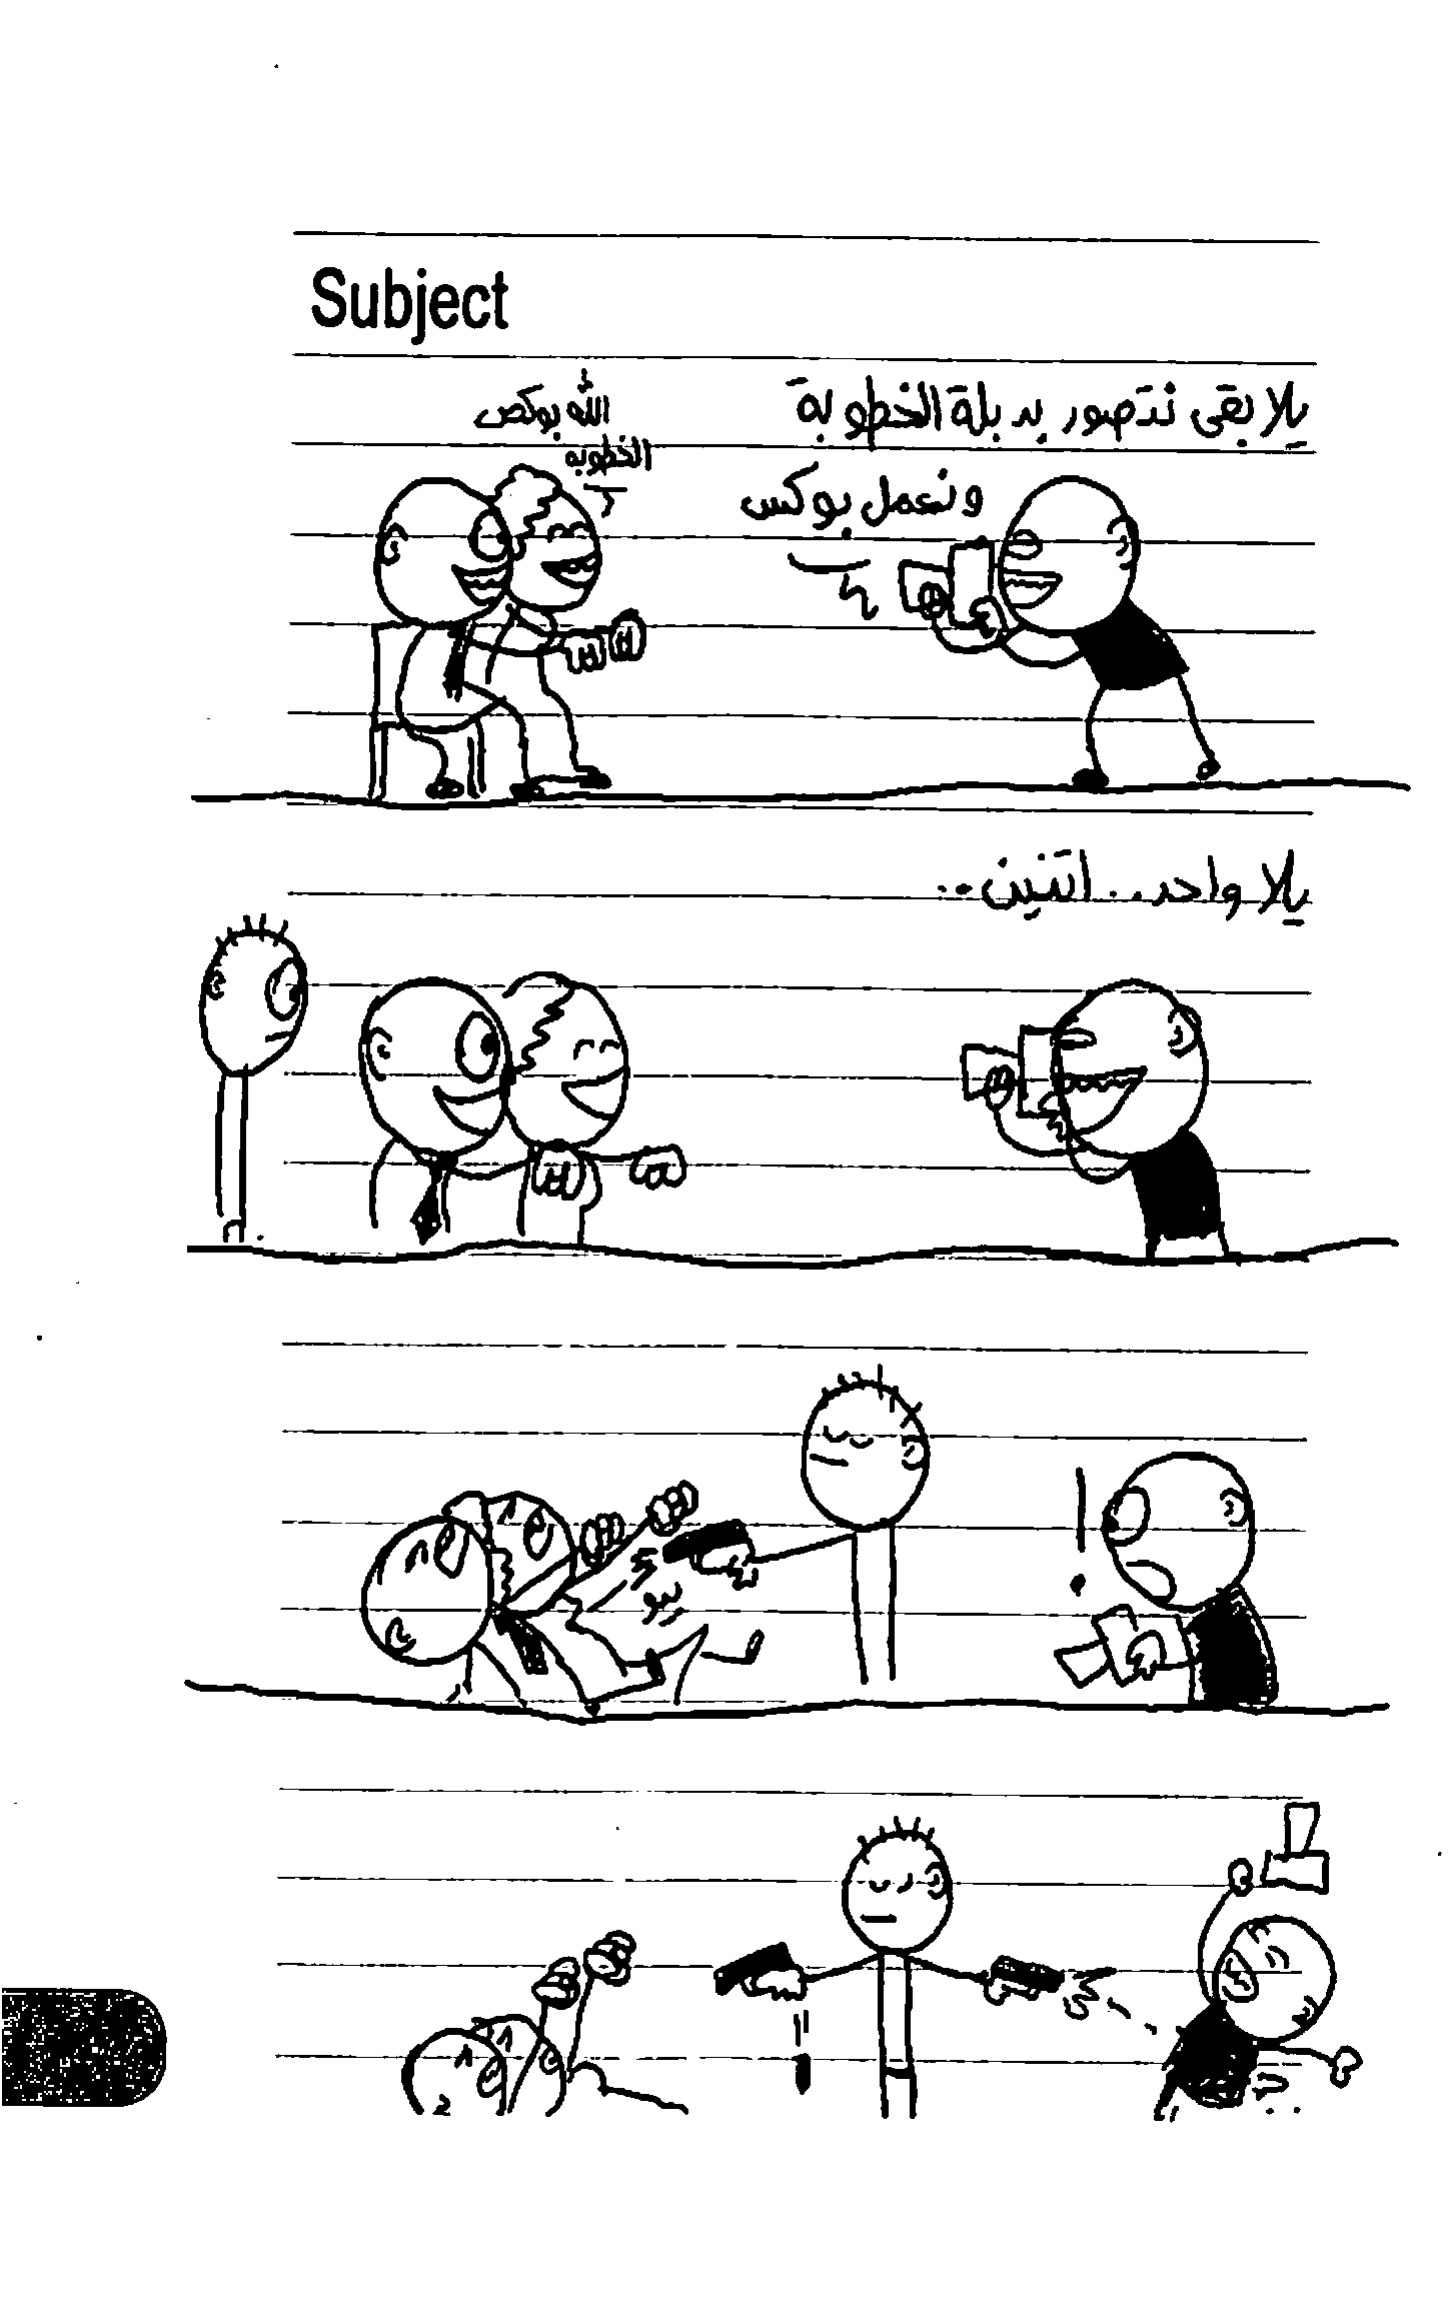 Subject
يلا بقى نتصور بدبلة الخطوبة
ونعمل بوكس
الله بوكص
الخطوبه
يلا واحد.. اتنين..